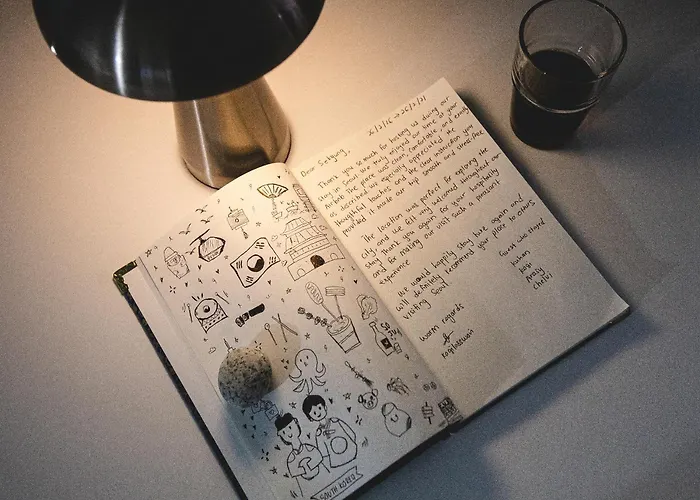 SOJU
SOUTH KOREA
26/2/16 → 26/2/21
Dear Sekyung,
Thank you so much for hosting us during our
stay in Seoul. We truly enjoyed our time at your
Airbnb. The place was clean, comfortable, and exactly
as described. We especially appreciated the
thoughtful touches and the clear instruction you
provided it made our trip smooth and stress-free
The location was perfect for exploring the
city and we felt very welcomed throughout our
stay. Thank you again for your hospitality
and for making our visit such a pleasant
experience
We would happily stay here again and
will definitely recommend your place to others
visiting Seoul.
Guest who stayed
Warm regards